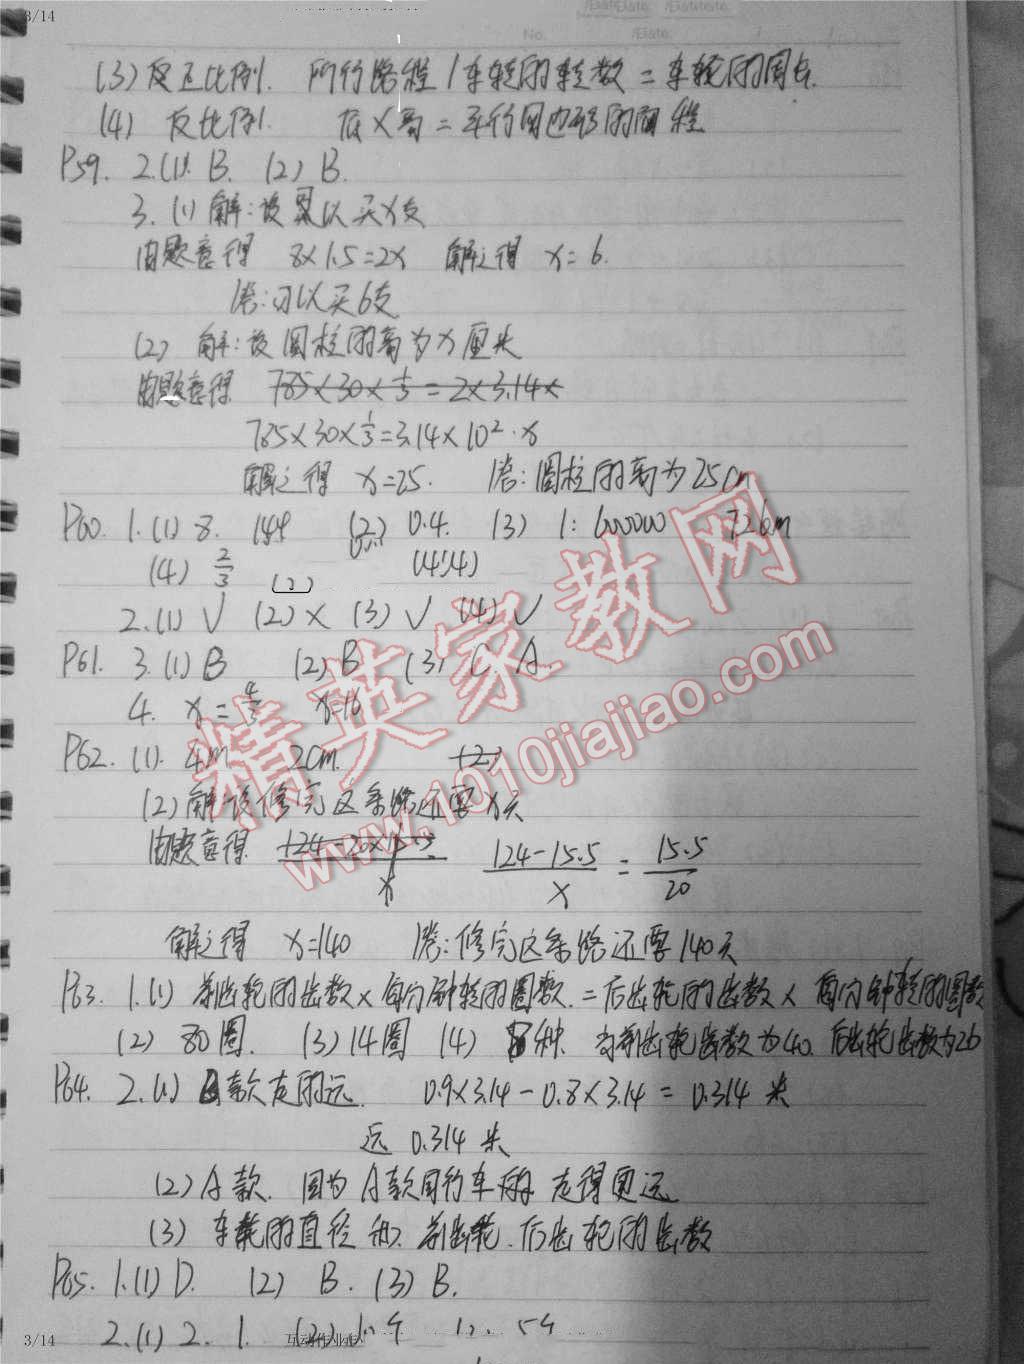 3/14
(3) 反正比例. 所行路程/车轮的转数=车轮的周长.
(4) 反比例. 底×高=平行四边形的面积
P59. 2.(1). B. (2) B.
3. (1) 解:设可以买x支
由题意得 8×1.5=2x 解之得 x=6.
答:可以买6支
(2) 解:设圆柱的高为x厘米
由题意得 785×30×1/3=2×3.14×
785×30×1/3=3.14×10²·x
解之得 x=25. 答:圆柱的高为25cm
P60. 1.(1) 8. 144 (2) 0.4. (3) 1:6000000 726m
(4) 2/3 (2) (4,4)
2.(1) √ (2) × (3) √ (4) √
P61. 3.(1) B (2) B (3) C A
4. x= x=16
P62. (1). 4m 2cm. (2)
(2) 解:设修完这条路还要x天
由题意得. (124-15.5)/x = 15.5/20
解之得 x=140 答:修完这条路还要140天
P63. 1.(1) 前齿轮的齿数×每分钟转的圈数=后齿轮的齿数×每分钟转的圈数
(2) 80圈. (3) 14圈 (4) 8种. 当前齿轮齿数为40. 后齿轮齿数为26
P64. 2.(1) 款走的远. 0.9×3.14-0.8×3.14=0.314米
远 0.314米
(2) A款. 因为A款自行车 走得更远
(3) 车轮的直径和 前齿轮.后齿轮的齿数
P65. 1.(1) D. (2) B. (3) B.
2.(1) 2. 1.
3/14
精英家教网
www.1010jiajiao.com